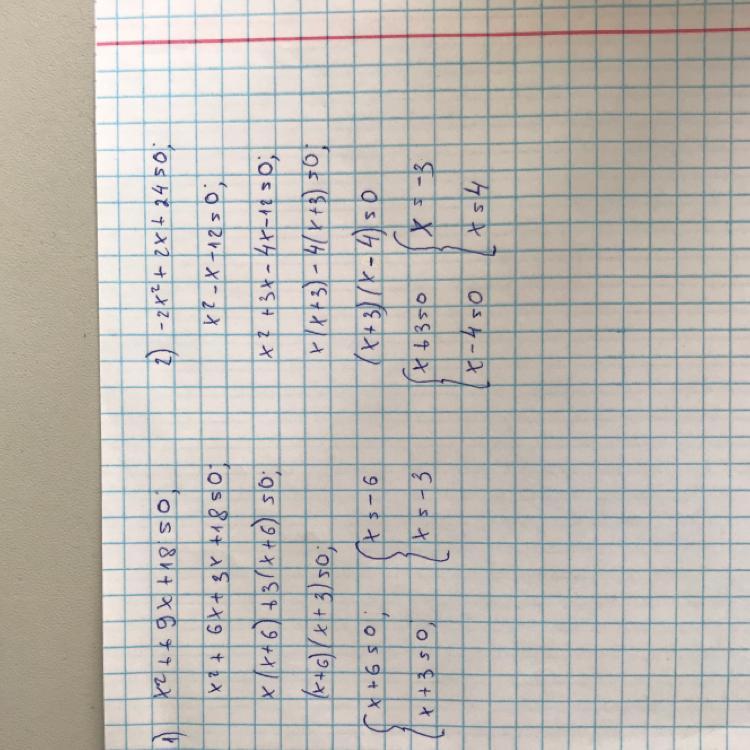 1) x² + 9x + 18 = 0;
x² + 6x + 3x + 18 = 0;
x(x+6) + 3(x+6) = 0;
(x+6)(x+3) = 0;
{ x + 6 = 0; { x = -6
{ x + 3 = 0; { x = -3
2) -2x² + 2x + 24 = 0;
x² - x - 12 = 0;
x² + 3x - 4x - 12 = 0;
x(x+3) - 4(x+3) = 0;
(x+3)(x-4) = 0
{ x + 3 = 0 { x = -3
{ x - 4 = 0 { x = 4